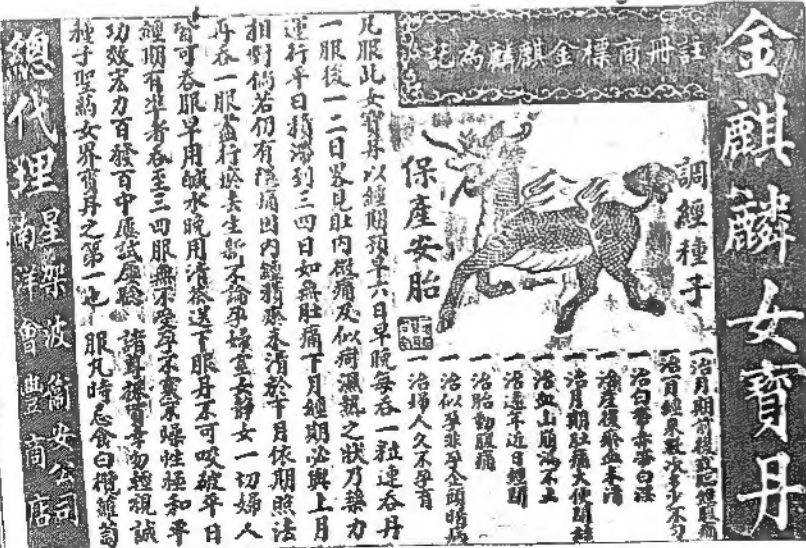 金麒麟女寶丹
註冊商標金麒麟為記
調經種子
保產安胎
一治月期前後
一治月經來數次多少不勻
一治白帶赤帶白淫
一治產後瘀血未清
一治月期肚痛大便
一治血山崩漏不止
一治遠年近日經閉
一治胎動腹痛
一治似孕非孕
一治婦人久不孕育
凡服此女寶丹以經期預早六日早晚每吞一粒連吞丹
一服後一二日畧見肚內微痛及似痾濕熱之狀乃藥力
運行平日積滯到三四日如無肚痛下月經期必與上月
相對倘若仍有隱痛因內積瘀未清於下月依期照法
再吞一服蓋行瘀去生新不論孕婦室女靜女一切婦人
皆可吞服早用鹹水晚用清茶送下服丹不可咬破平日
經期有準者吞至三四服無不受孕不寒不燥性極和平
功效宏力百發百中屢試屢驗諸君採買幸勿輕視誠
種子聖藥女界寶丹之第一也服丸時忌食白欖蘿蔔
總代理
星架波簡安公司
南洋會豐商店